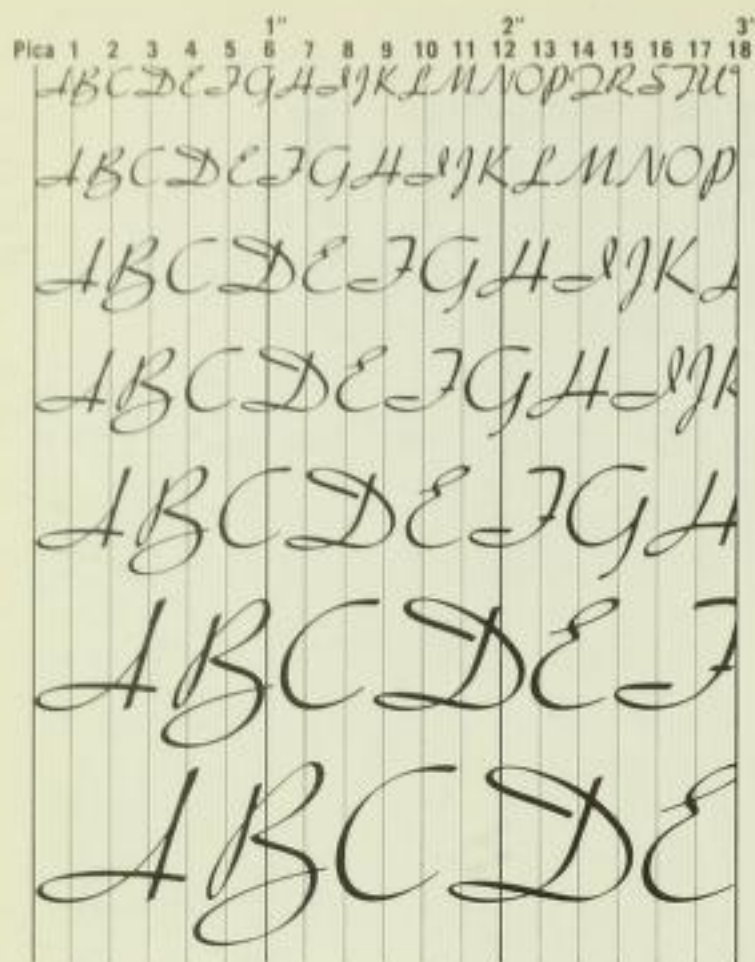 1" 2" 3"
Pica 1 2 3 4 5 6 7 8 9 10 11 12 13 14 15 16 17 18
ABCDEFGHIJKLMNOPQRSTU
ABCDEFGHIJKLMNOP
ABCDEFGHIJKL
ABCDEFGHIJK
ABCDEFGH
ABCDEF
ABCDE